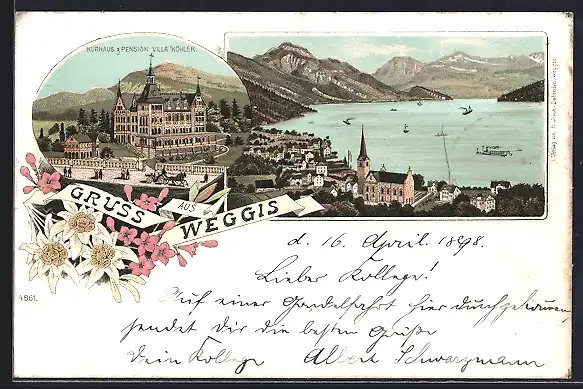 KURHAUS & PENSION VILLA KÖHLER
GRUSS
AUS
WEGGIS
d. 16. April. 1898.
Lieber Kollege!
Auf einer Gondelfahrt hier durchgekommen,
sendet Dir die besten Grüße
Dein Kollege Albert Schwarzmann
4861.